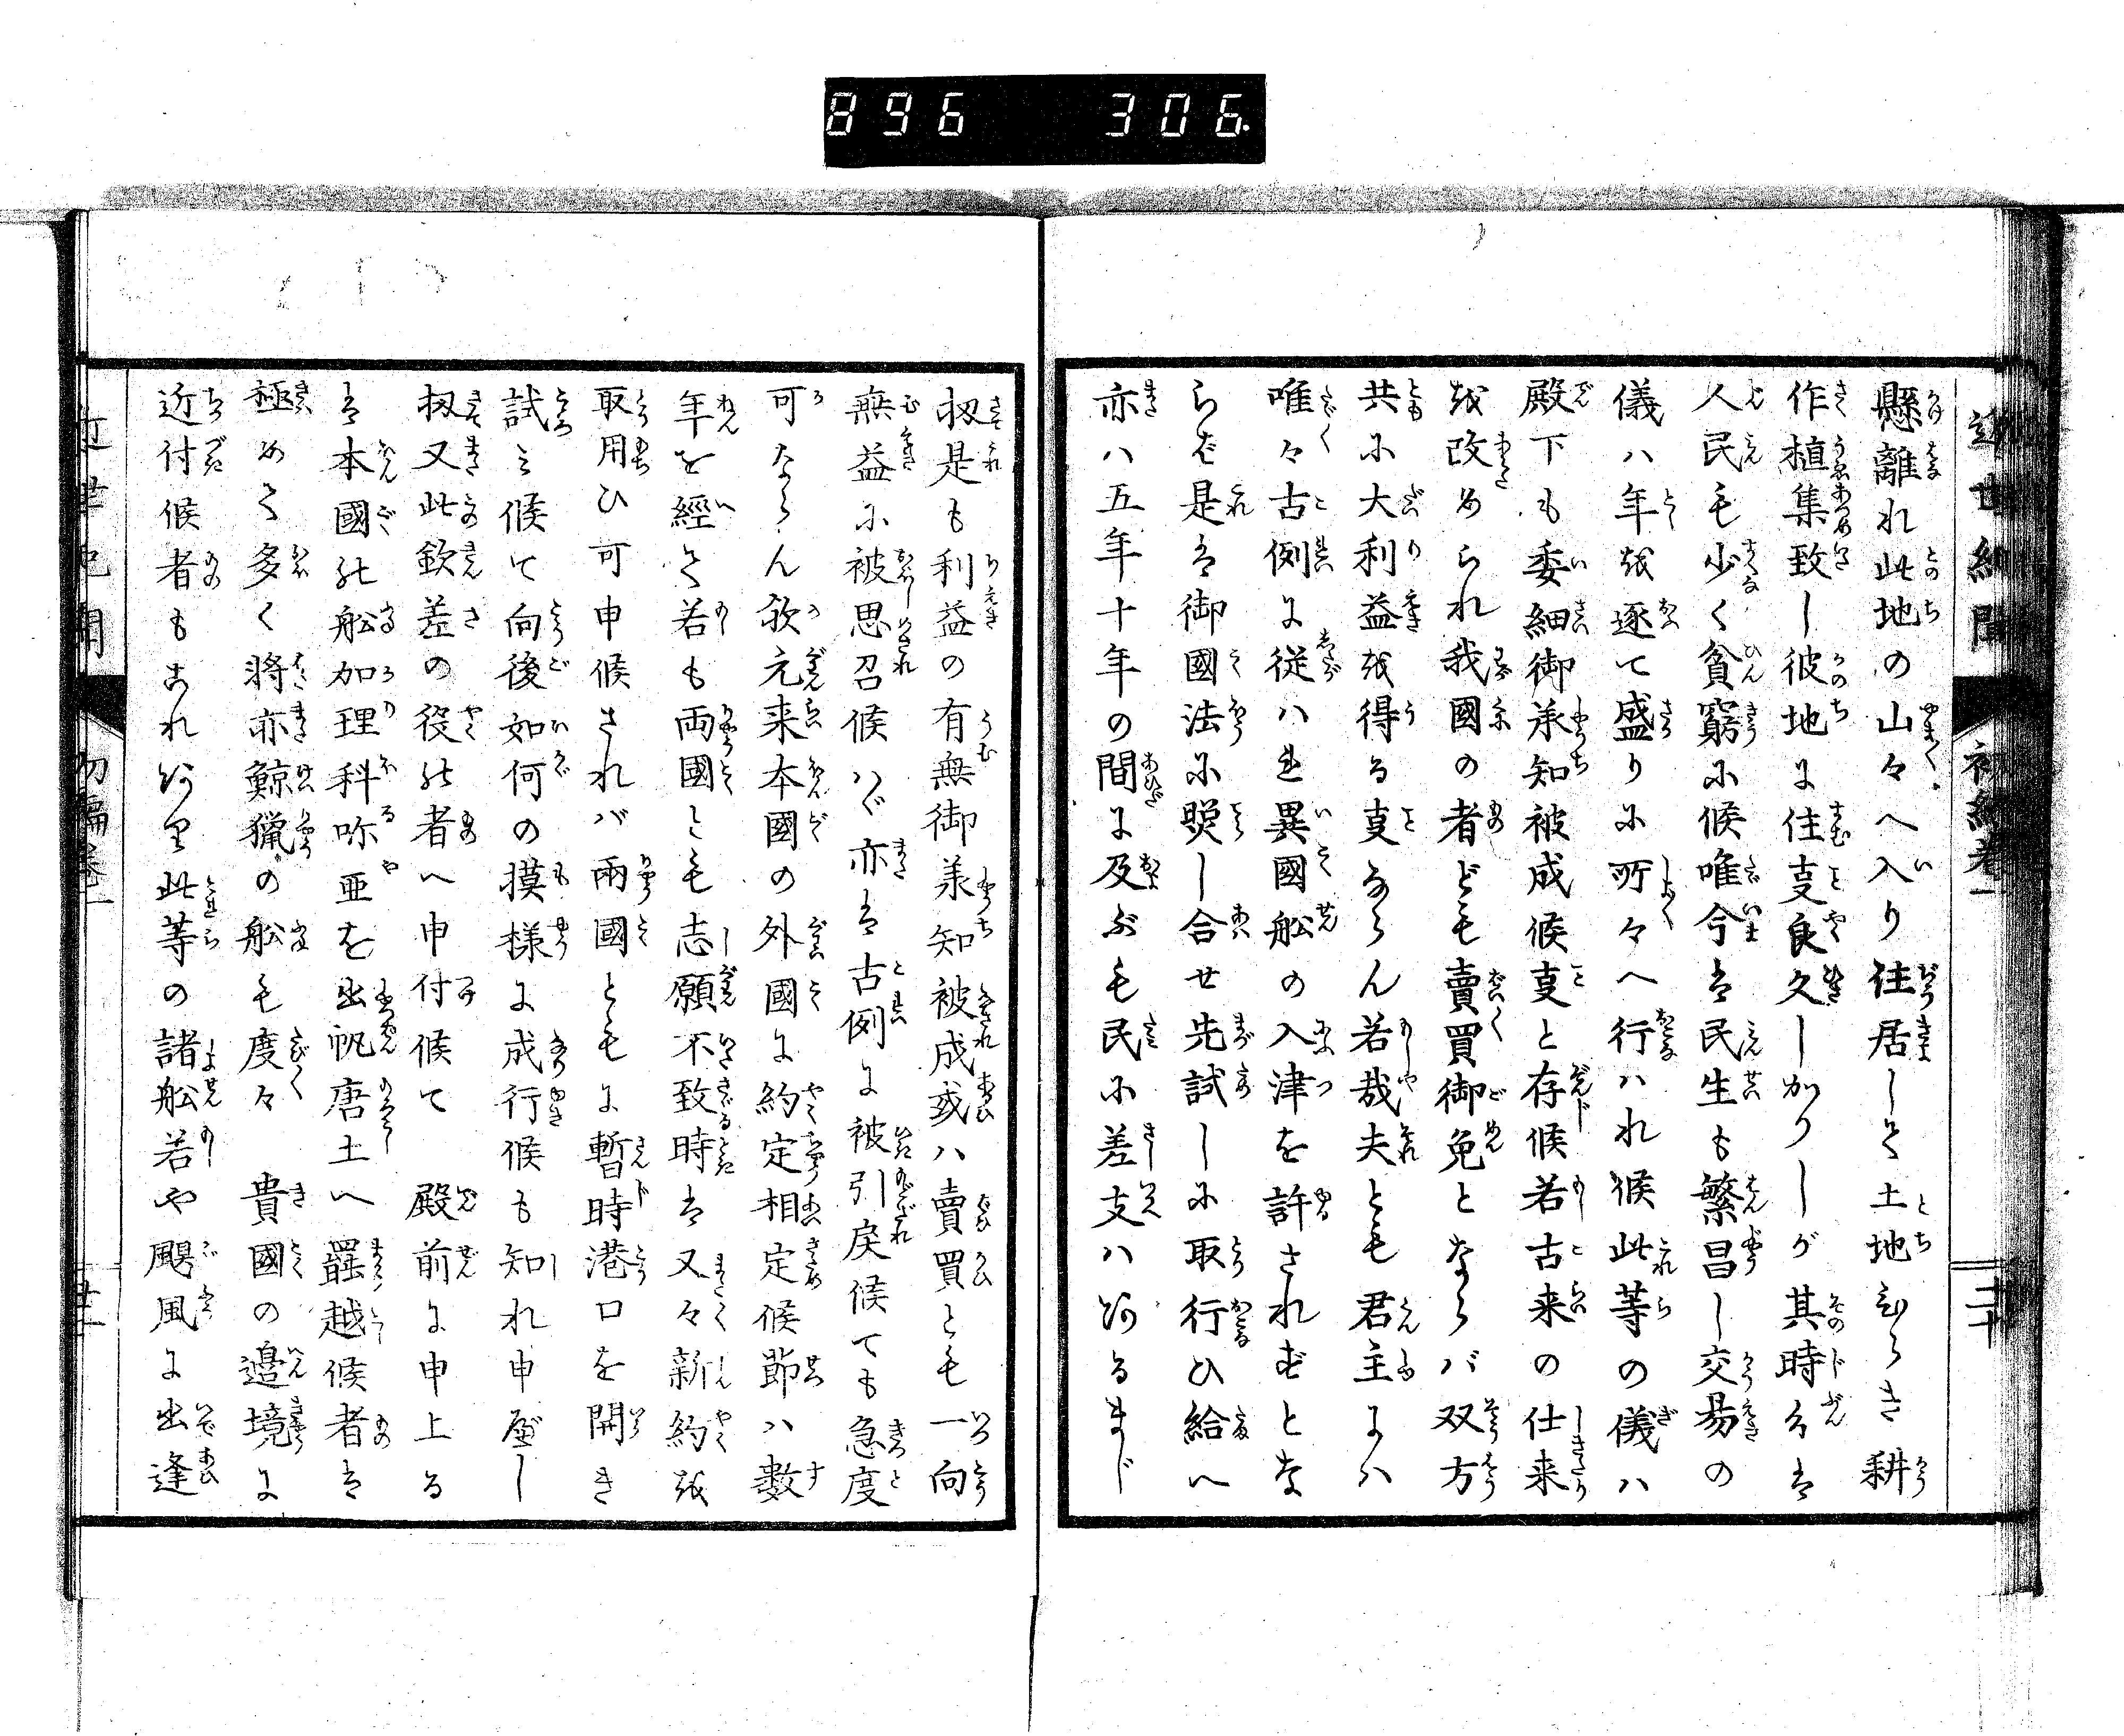 896 306
近世紀聞 初編巻一 二十
懸離れ此地の山々へ入り住居して土地ひらき耕
作植集致し彼地に住事良久しかりしが其時分は
人民も少く貧窮に候唯今は民生も繁昌し交易の
儀ハ年を逐て盛りに所々へ行ハれ候此等の儀ハ
殿下も委細御承知被成候事と存候若古来の仕来
を改められ我國の者ども賣買御免とならバ双方
共に大利益を得る事ならん若哉夫とも君主にハ
唯々古例に従ハれ異國舩の入津を許されずとな
らば是は御國法に熨し合せ先試しに取行ひ給へ
亦ハ五年十年の間に及ぶも民に差支ハあるまじ
扨是も利益の有無御承知被成或ハ賣買とも一向
無益に被思召候ハゞ亦は古例に被引戻候ても急度
可ならん歟元来本國の外國に約定相定候節ハ数
年を經て若も両國とも志願不致時は又々新約を
取用ひ可申候されバ兩國ともに暫時港口を開き
試ミ候て向後如何の摸様に成行候も知れ申屋し
扨又此欽差の役の者へ申付候て 殿前に申上る
は本國の舩加理科呎亜を出帆唐土へ罷越候者は
極めて多く將亦鯨猟の舩も度々 貴國の邉境に
近付候者もこれあり此等の諸舩若や颶風に出逢
近世紀聞 初編巻一